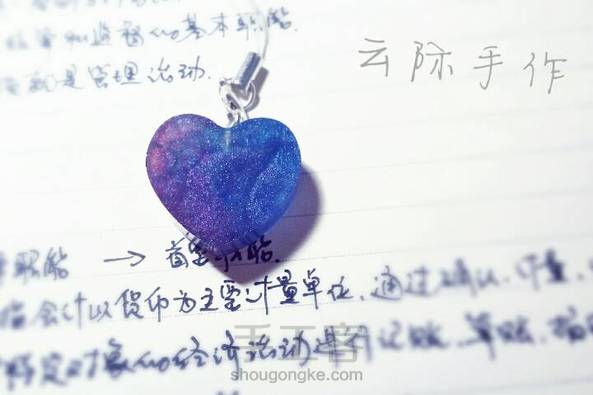 和监督的基本职能.
就是管理活动.
云际手作
职能 → 首要职能.
会计以货币为主要计量单位、通过确认、计量、
特定对象的经济活动进行记账、算账、
手工客
shougongke.com